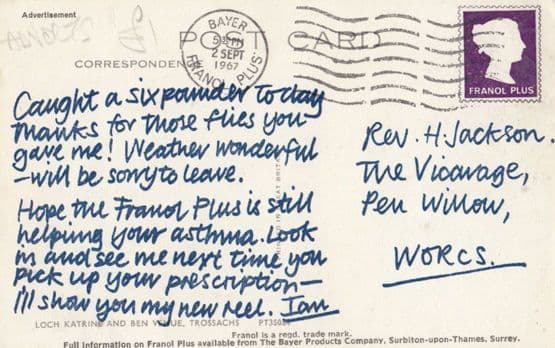 Advertisement
POST CARD
CORRESPONDENCE
BAYER
2 SEPT
1967
FRANOL PLUS
FRANOL PLUS
Caught a six pounder today
thanks for those flies you
gave me! Weather wonderful
– will be sorry to leave.
Hope the Franol Plus is still
helping your asthma. Look
in and see me next time you
pick up your prescription –
I'll show you my new reel. Ian
Rev. H. Jackson.
The Vicarage,
Pen Willow,
WORCS.
LOCH KATRINE AND BEN VENUE, TROSSACHS
Franol is a regd. trade mark.
Full information on Franol Plus available from The Bayer Products Company, Surbiton-upon-Thames, Surrey.